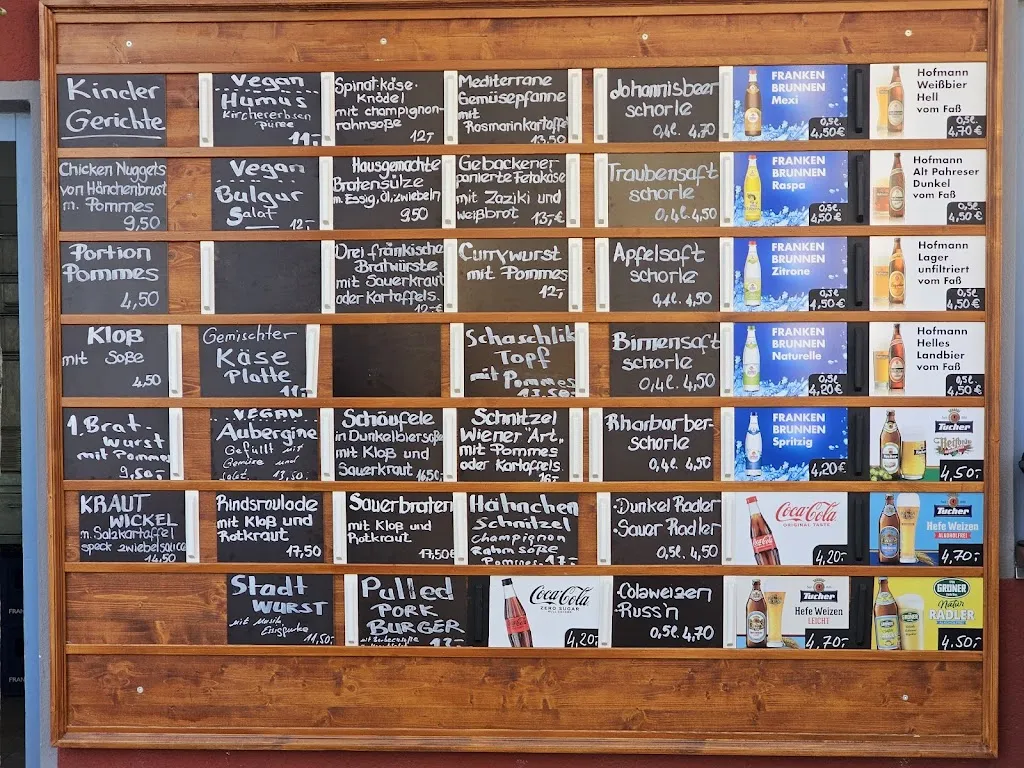 Kinder
Gerichte
Vegan
Humus
Kichererbsen
püree
11,-
Spinat-käse-
Knödel
mit champignon-
rahmsoße
12,-
Mediterrane
Gemüsepfanne
mit
Rosmarinkartoffel
13,50
Johannisbeer
schorle
0,4l. 4,70
FRANKEN
BRUNNEN
Mexi
0,5l
4,50€
Hofmann
Weißbier
Hell
vom Faß
0,5l
4,70 €
Chicken Nuggets
von Hänchenbrust
m. Pommes
9,50
Vegan
Bulgur
Salat 12,-
Hausgemachte
Bratensülze
m. Essig, Öl, zwiebeln
9,50
Gebackener
panierte Fetakäse
mit Zaziki und
weißbrot 13,-€
Traubensaft
schorle
0,4l. 4,50
FRANKEN
BRUNNEN
Raspa
0,5l
4,50 €
Hofmann
Alt Pahreser
Dunkel
vom Faß
0,5l
4,50 €
Portion
Pommes
4,50
Drei fränkische
Bratwürste
mit Sauerkraut
oder Kartoffels.
12,-€
Currywurst
mit Pommes
12,-
Apfelsaft
schorle
0,4l. 4,50
FRANKEN
BRUNNEN
Zitrone
0,5l
4,50 €
Hofmann
Lager
unfiltriert
vom Faß
0,5l
4,50 €
Kloß
mit Soße
4,50
Gemischter
Käse
Platte
11,-
Schaschlik
Topf
mit Pommes
13,50
Birnensaft
schorle
0,4l. 4,50
FRANKEN
BRUNNEN
Naturelle
0,5l
4,20 €
Hofmann
Helles
Landbier
vom Faß
0,5l.
4,50 €
1.Brat-
wurst
mit Pommes
9,50,-
VEGAN
Aubergine
Gefüllt mit
Gemüse und
Salat 13,50,-
Schäufele
in Dunkelbiersoße
mit Kloß und
Sauerkraut 16,50€
Schnitzel
Wiener "Art"
mit Pommes
oder Kartoffels.
16,-
Rharbarber-
schorle
0,4l. 4,50
FRANKEN
BRUNNEN
Spritzig
4,20 €
Tucher
4,50,-
KRAUT
WICKEL
m. Salzkartoffel
speck zwiebelsauce
14,50
Rindsroulade
mit Kloß und
Rotkraut
17,50
Sauerbraten
mit Kloß und
Rotkraut
17,50€
Hähnchen
Schnitzel
Champignon
Rahm Soße
Pommes 17,-
·Dunkel Radler
·Sauer Radler
0,5l. 4,50
Coca-Cola
ORIGINAL TASTE
4,20,-
Tucher
Hefe Weizen
ALKOHOLFREI
4,70,-
Stadt
WURST
mit Musik
Essiggurke 11,50,-
Pulled
PORK
BURGER
Coca-Cola
ZERO SUGAR
4,20,-
·Colaweizen
·Russ'n
0,5l. 4,70
Tucher
Hefe Weizen
LEICHT
4,70,-
GRÜNER
Natur
RADLER
4,50,-